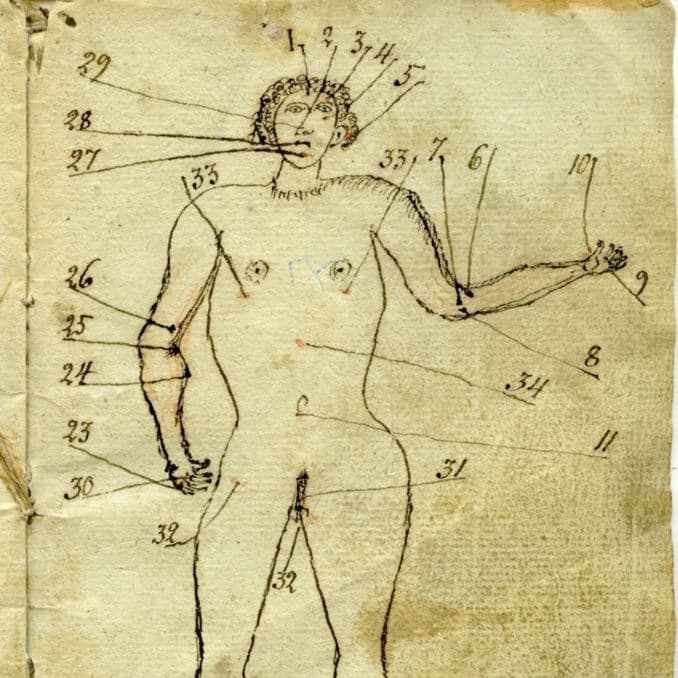 1 2 3 4 5
29
28
27
33 33 7 6 10
26
25
24
9
8
34
23
30
11
31
32
32